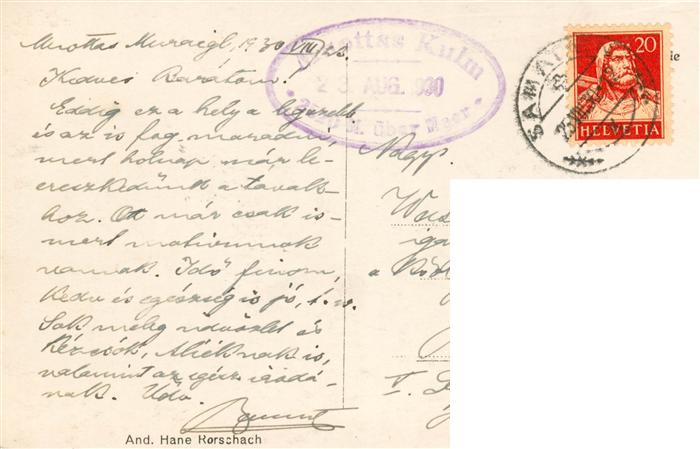 Muottas Muraigl, 1930 VIII/23
Kedves Barátom!
Eddig ez a hely a legszebb
és az is fog maradni,
mert holnap már le-
ereszkedünk a tavak-
hoz. Ott már csak is-
mert motivumok
vannak. Idő finom,
kedv és egészség is jó,
Sok meleg üdvözlet és
kézcsók, Aliéknak is,
valamint az egész irodá-
nak. Üdv.
And. Hane Rorschach
Muottas Kulm
23. AUG. 1930
M. über Meer
SAMADEN
20
HELVETIA
ie
Nagys.
a
I.